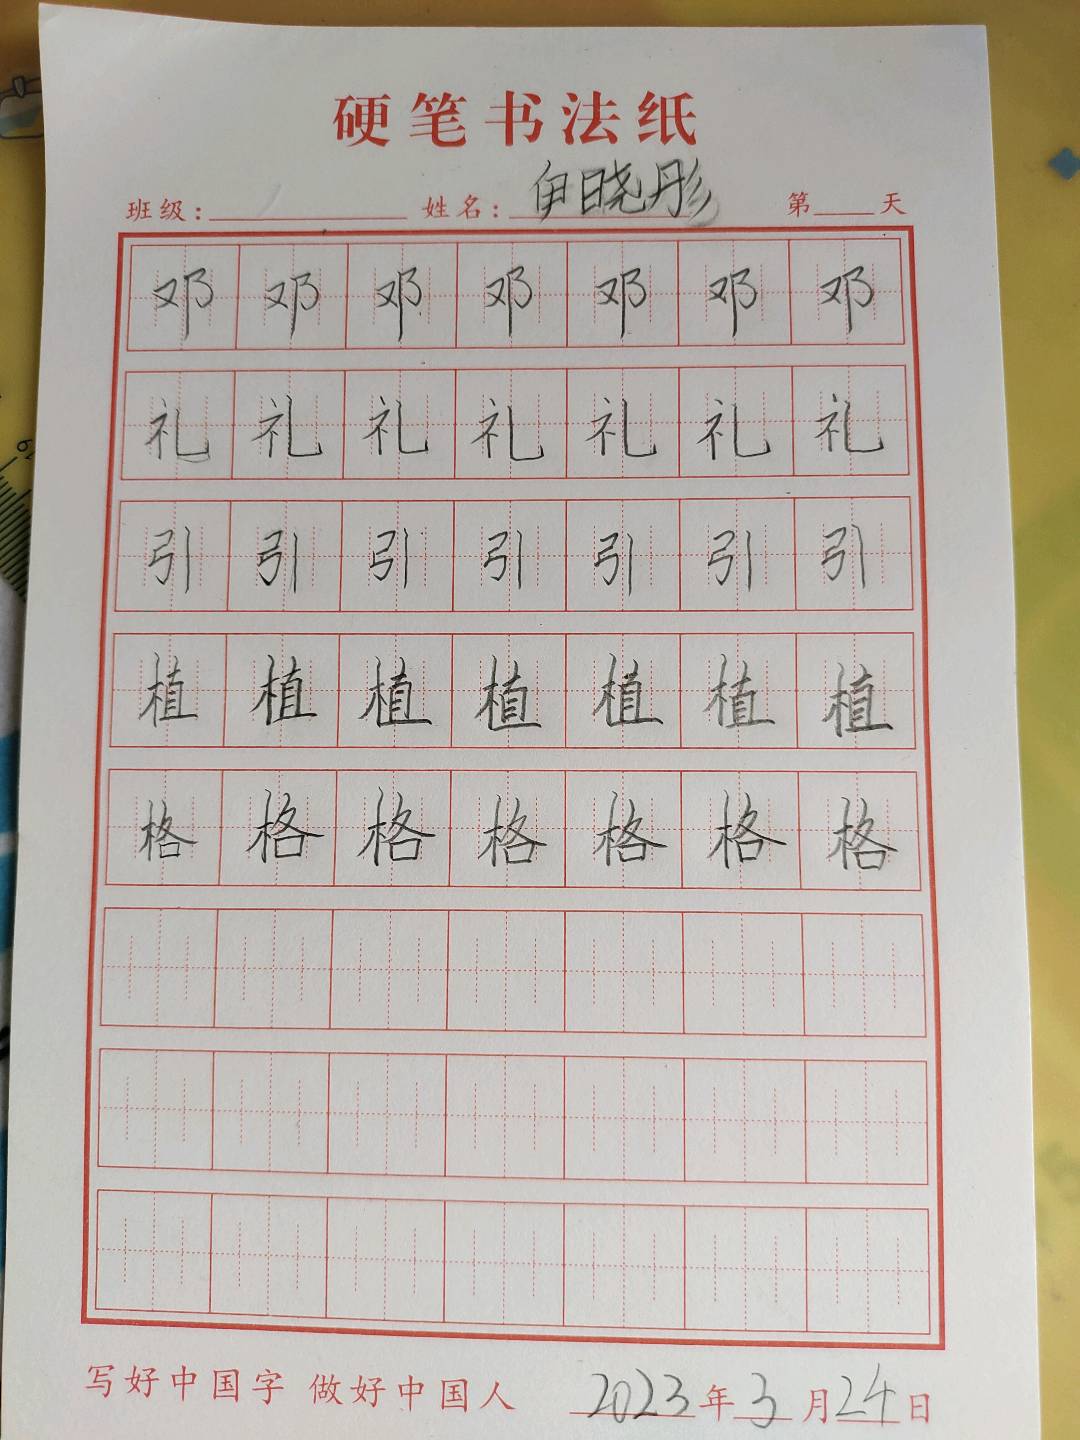 硬笔书法纸
班级： 姓名：伊晓彤 第 天
邓邓邓邓邓邓邓
礼礼礼礼礼礼礼
引引引引引引引
植植植植植植植
格格格格格格格
写好中国字 做好中国人 2023年3月24日